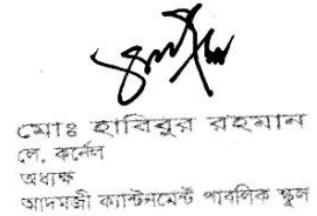 মোঃ হাবিবুর রহমান
লে. কর্নেল
অধ্যক্ষ
আদমজী ক্যান্টনমেন্ট পাবলিক স্কুল